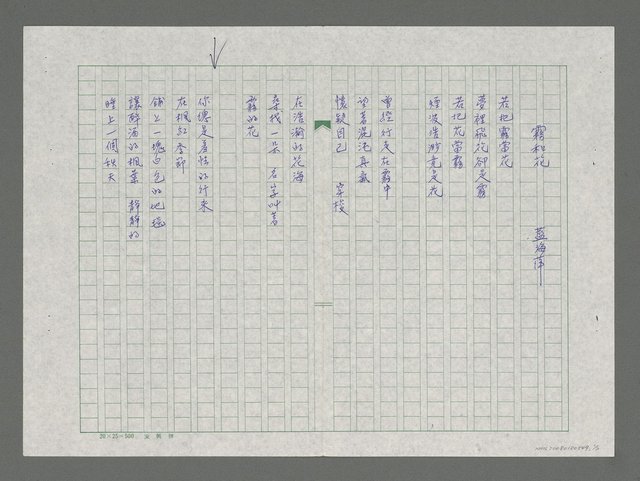 霧和花
藍海萍
若把霧當花
夢裡飛花卻是霧
若把花當霧
煙波浩渺竟是花
曾經行走在霧中
望着混沌真氣
懷疑自己 穿梭
在浩瀚的花海
尋找一朵 名字叫着
霧的花
你總是羞怯的行來
在楓紅季節
舖上一塊白色的地毯
讓醉酒的楓葉 靜靜的
睡上一個秋天
20×25=500